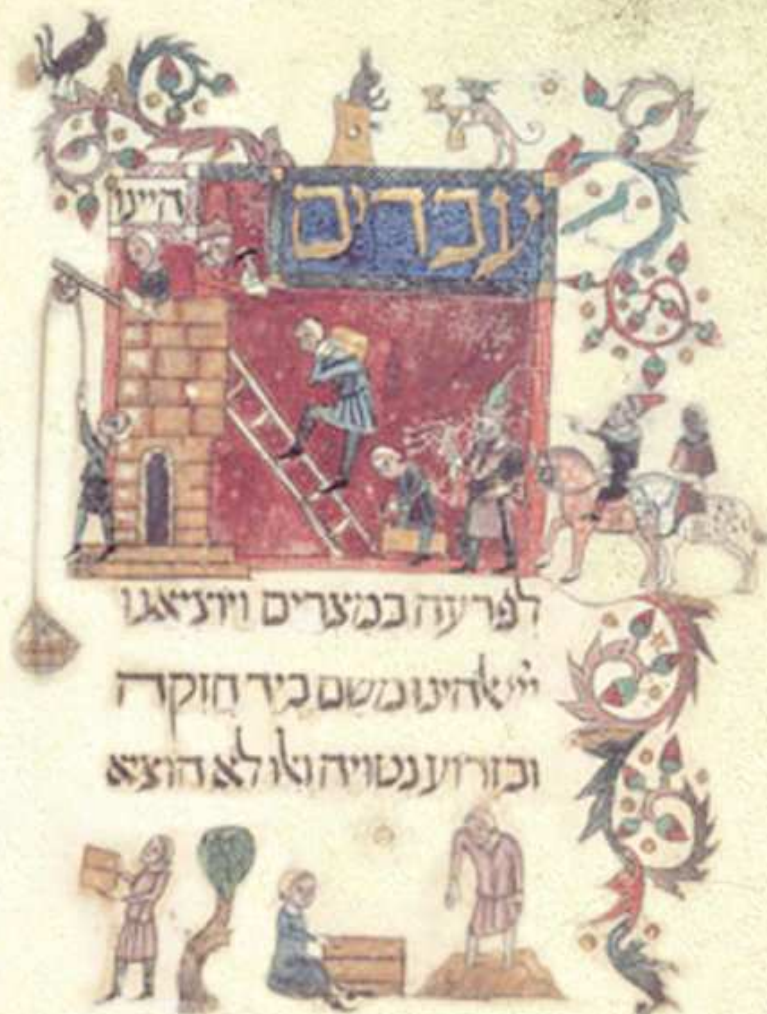 עבדים היינו
לפרעה במצרים ויוציאנו
ייי אלהינו משם ביד חזקה
ובזרוע נטויה ואלו לא הוציא